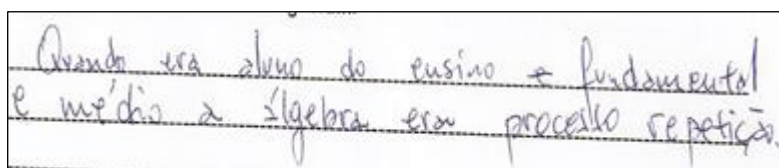 Quando era aluno do ensino e fundamental
e médio a álgebra era processo repetição.